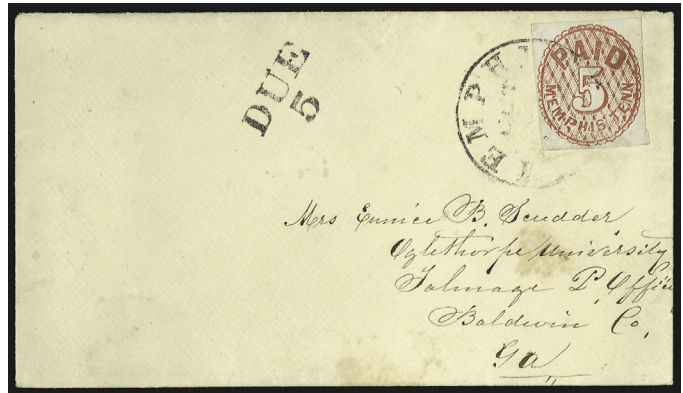 DUE
5
MEMPHIS
PAID
5
MEMPHIS, TENN
Mrs Eunice B. Scudder
Oglethorpe University
Talmage P. Office
Baldwin Co,
Ga